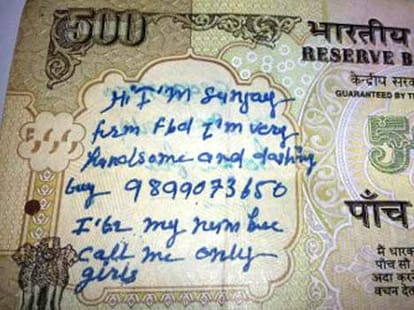 500
भारतीय
RESERVE B
केन्द्रीय सरका
GUARANTEED BY T
Hi I'm Sanjay
frm Fbd I'm very
handsome and dashing
Guy 9899073650
my
call me only
girls
5
पाँच
मैं धारक
पाँच सौ
अदा करने
वचन देता